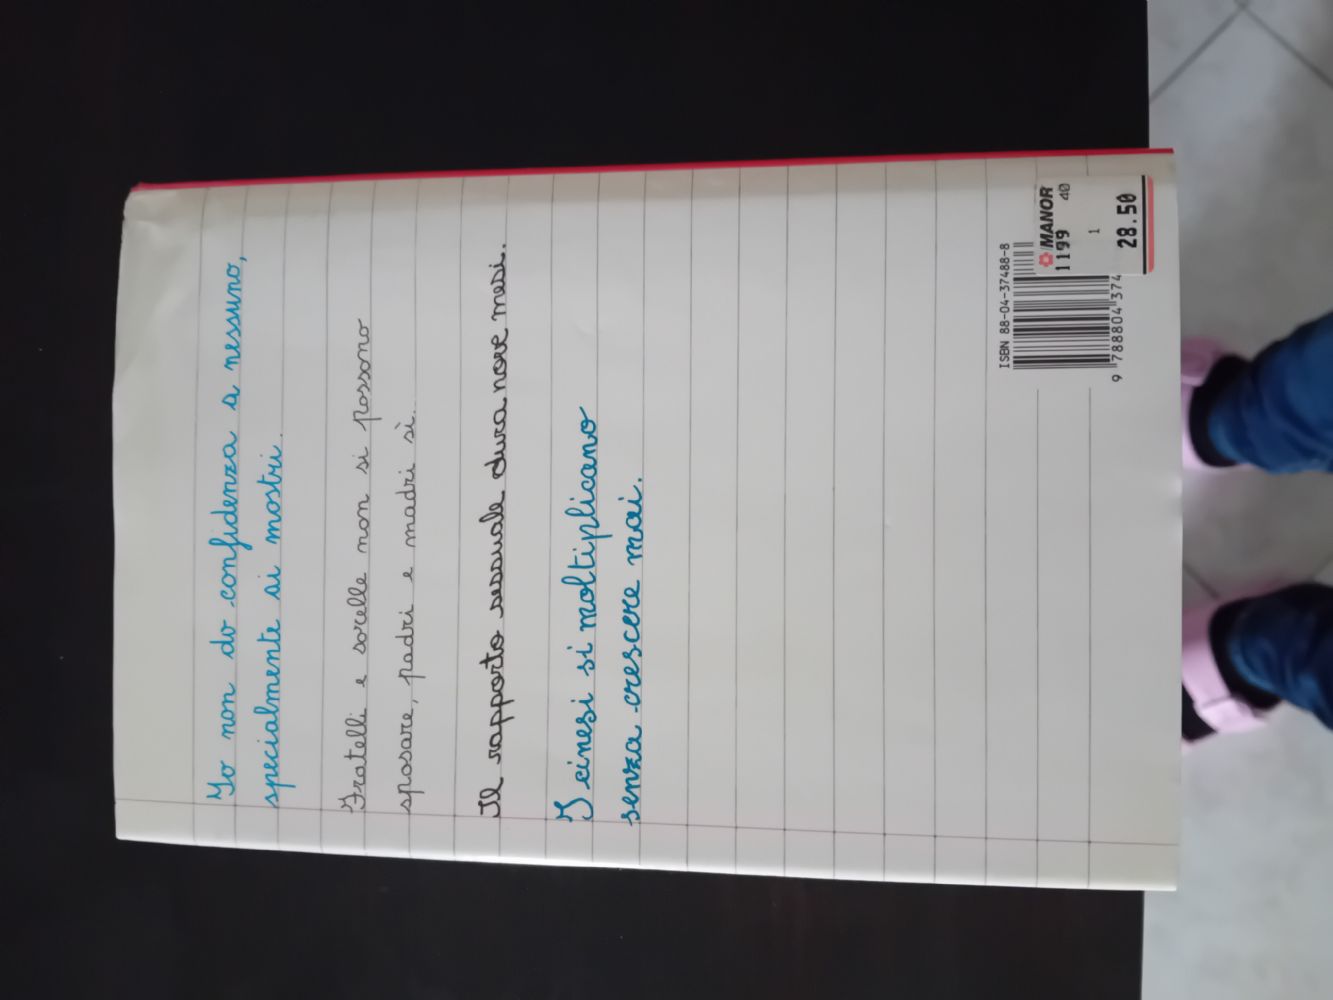 Io non do confidenza a nessuno,
specialmente ai mostri.
Fratelli e sorelle non si possono
sposare, padri e madri sì.
Il rapporto sessuale dura nove mesi.
I cinesi si moltiplicano
senza crescere mai.
ISBN 88-04-37488-8
MANOR
1199 40
1
28.50
9 788804 374